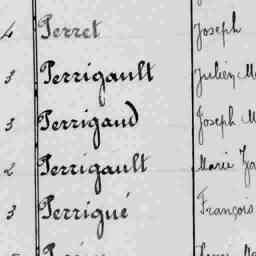 4 Perret Joseph
3 Perrigault Julien M
3 Perrigaud Joseph M
2 Perrigault Marie
3 Perrigué François